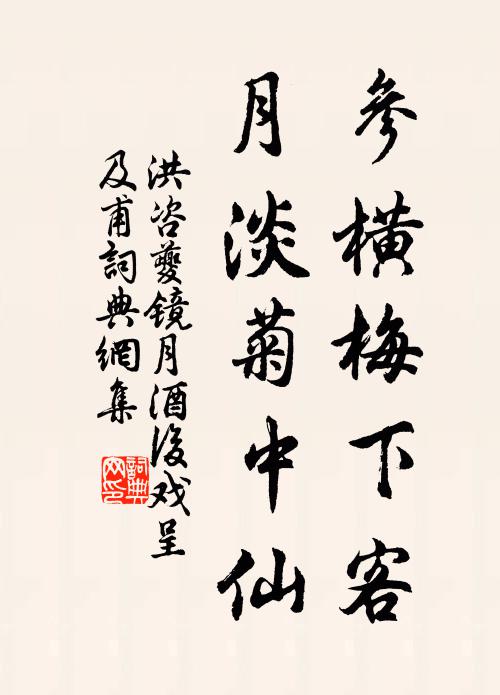 參橫梅下客
月淡菊中仙
洪咨夔鏡月酒後戏呈
及甫詞典網集
詞典
网印